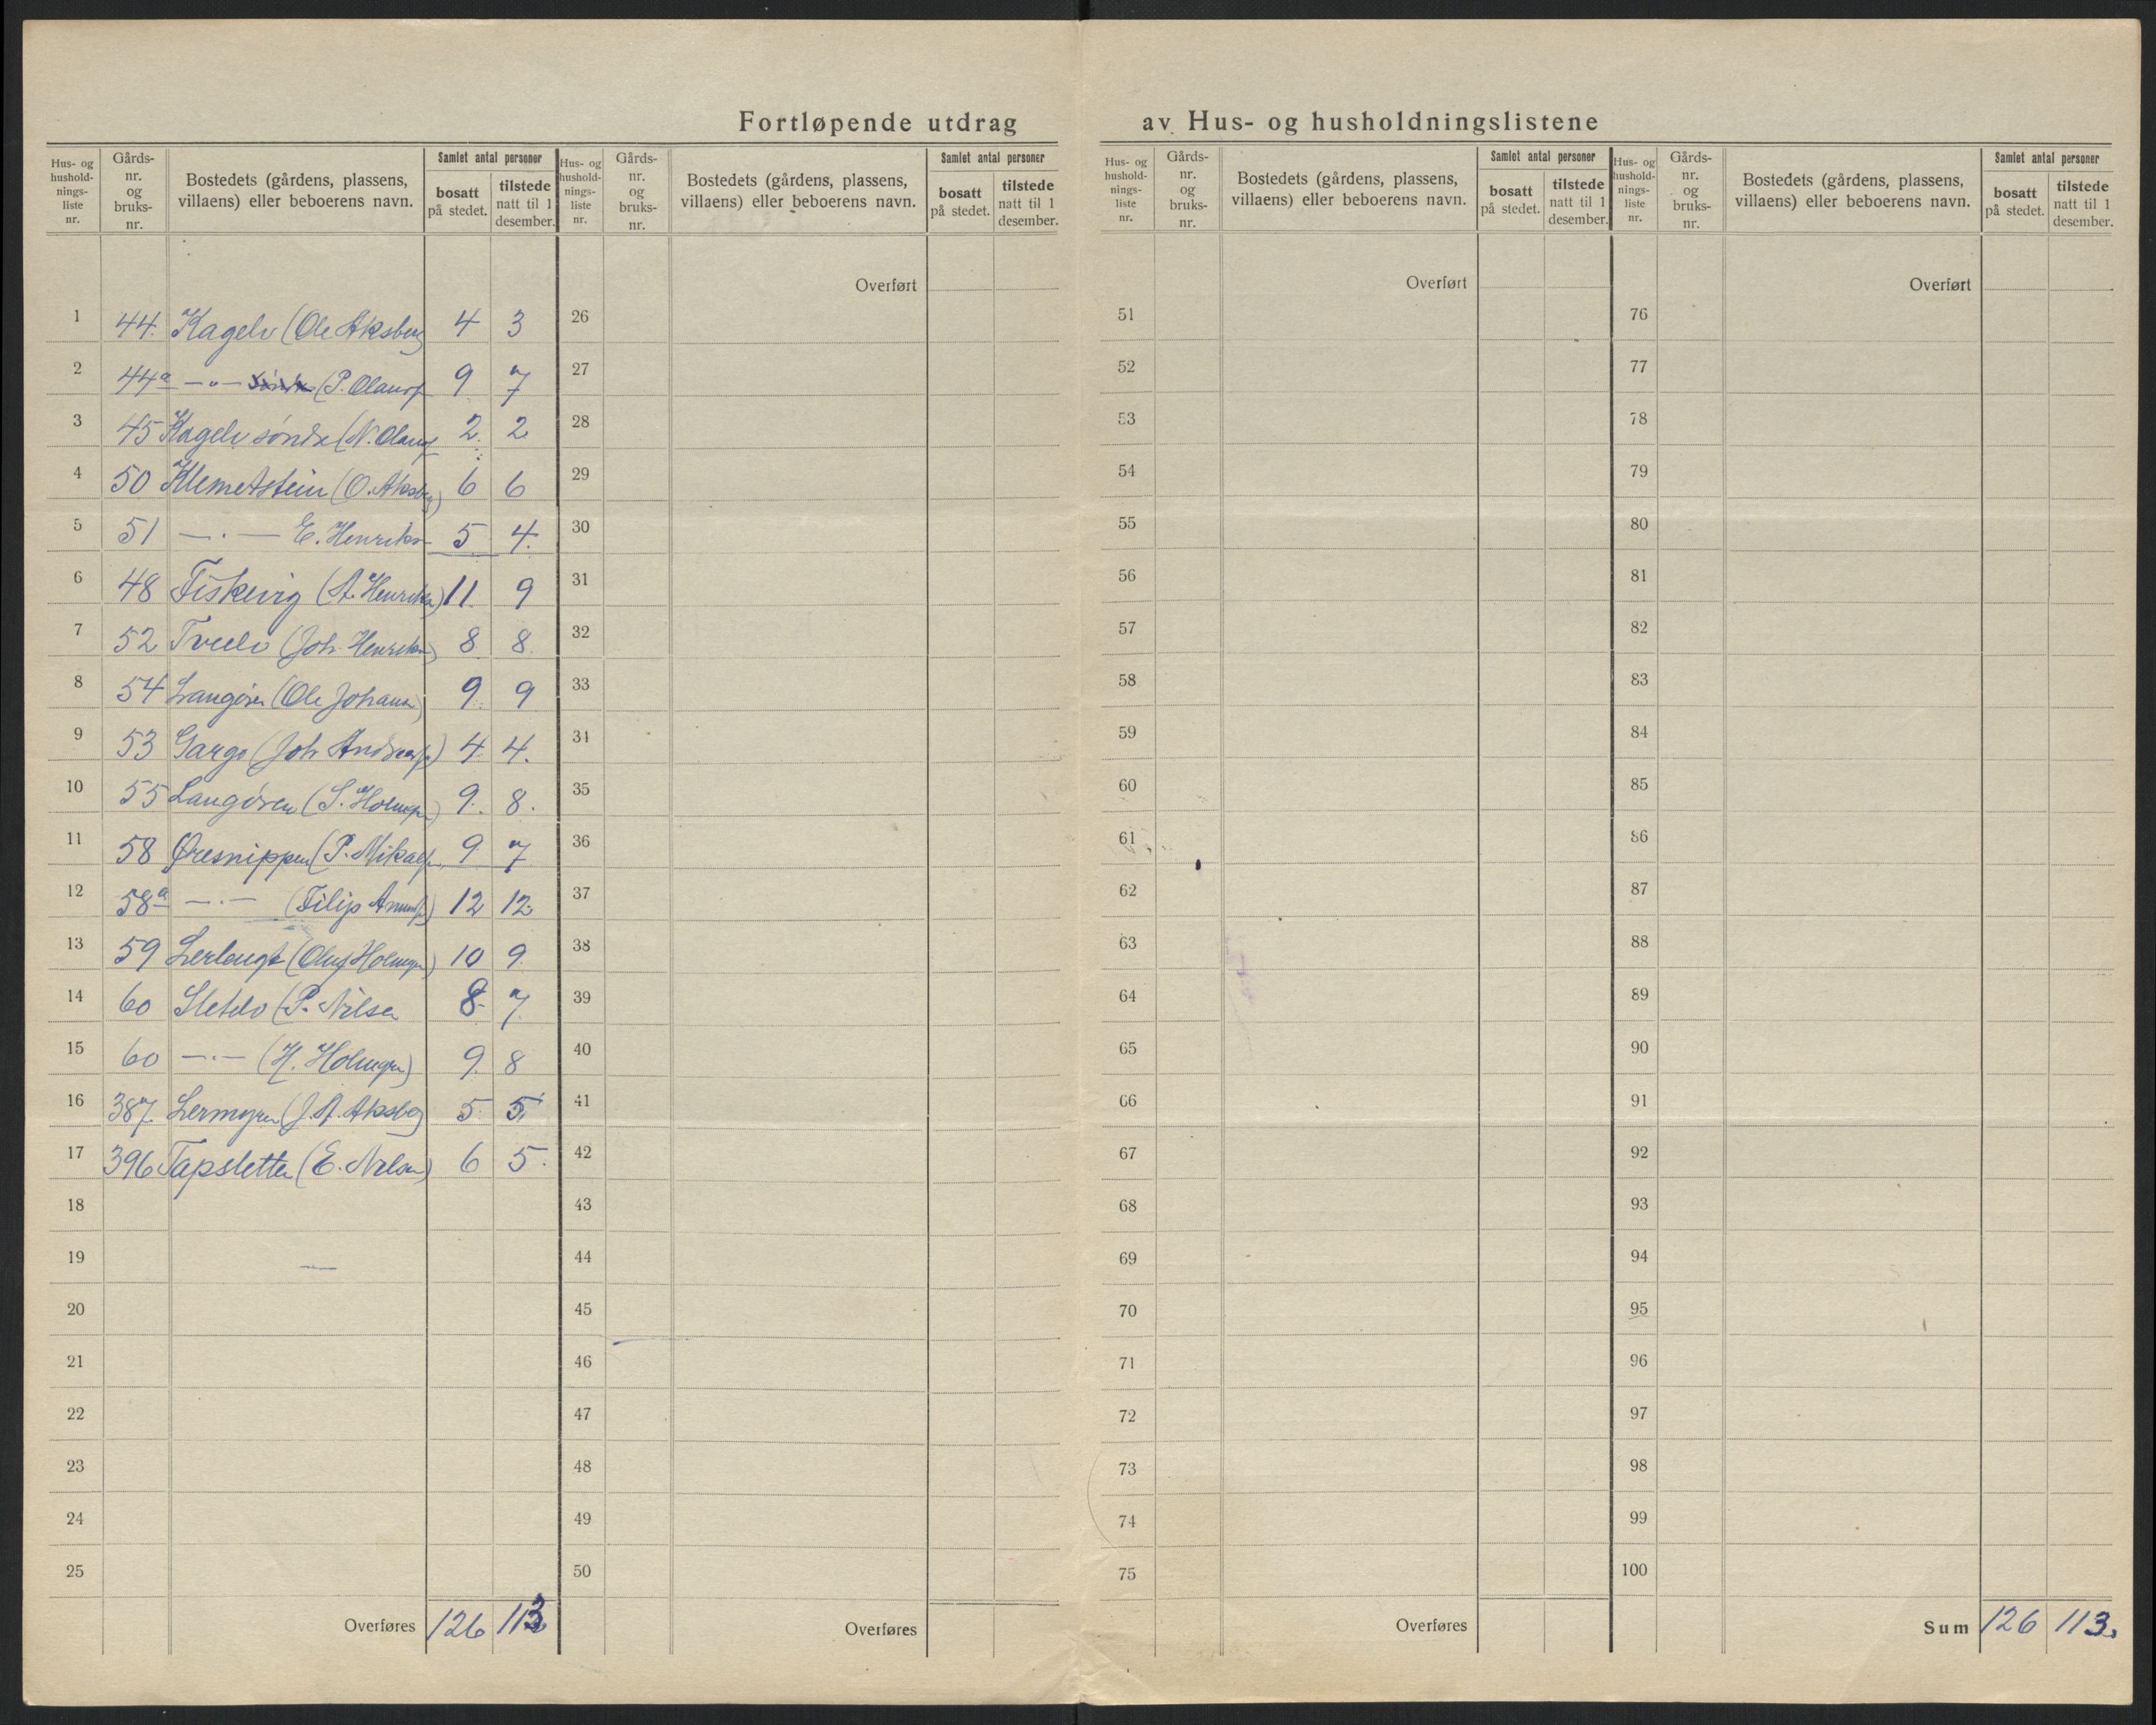 Fortløpende utdrag av Hus- og husholdningslistene
Hus- og hushold- nings- liste nr. Gårds- nr. og bruks- nr. Bostedets (gårdens, plassens, villaens) eller beboerens navn. Samlet antal personer bosatt på stedet. tilstede natt til 1 desember.
1 44. Kagelv (Ole Aksberg 4 3
2 44a —"— (P. Olaus 9 7
3 45 Kagelv søndre (N. Olaus 2 2
4 50 Klemetstein (O. Aksberg) 6 6
5 51 —.— E. Henriks 5 4.
6 48 Fiskevig (A. Henriks) 11 9
7 52 Tverelv (Joh. Henriks) 8 8
8 54 Langøren (Ole Johans) 9 9
9 53 Gargo (Joh Andreas) 4 4.
10 55 Langøren (S. Holmgr) 9 8.
11 58 Øresnippen (P. Mikals 9 7
12 58a —.— (Filip Amunds) 12 12
13 59 (Oluf Holmgren) 10 9
14 60 Sletelv (P. Nilsen 8 7
15 60 —.— (H. Holmgren) 9 8
16 387. Lermyren (J. A. Aksberg) 5 5
17 396 Tapsletten (E. Nilsen) 6 5.
18
19
20
21
22
23
24
25
Overføres 126 113
Hus- og hushold- nings- liste nr. Gårds- nr. og bruks- nr. Bostedets (gårdens, plassens, villaens) eller beboerens navn. Samlet antal personer bosatt på stedet. tilstede natt til 1 desember.
Overført
26
27
28
29
30
31
32
33
34
35
36
37
38
39
40
41
42
43
44
45
46
47
48
49
50
Overføres
Hus- og hushold- nings- liste nr. Gårds- nr. og bruks- nr. Bostedets (gårdens, plassens, villaens) eller beboerens navn. Samlet antal personer bosatt på stedet. tilstede natt til 1 desember.
Overført
51
52
53
54
55
56
57
58
59
60
61
62
63
64
65
66
67
68
69
70
71
72
73
74
75
Overføres
Hus- og hushold- nings- liste nr. Gårds- nr. og bruks- nr. Bostedets (gårdens, plassens, villaens) eller beboerens navn. Samlet antal personer bosatt på stedet. tilstede natt til 1 desember.
Overført
76
77
78
79
80
81
82
83
84
85
86
87
88
89
90
91
92
93
94
95
96
97
98
99
100
Sum 126 113.